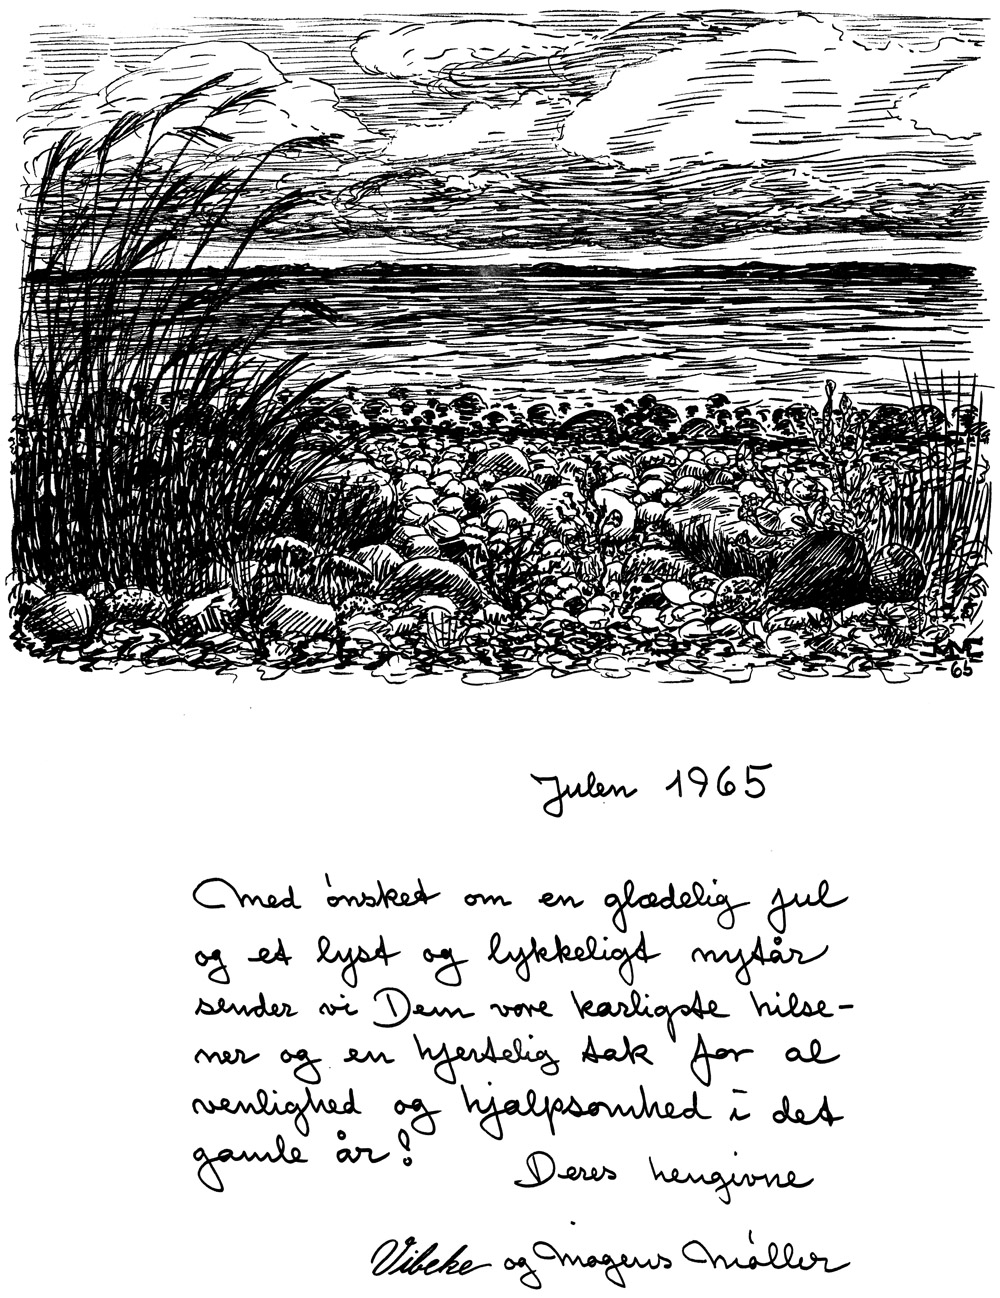 65
Julen 1965
Med ønsket om en glædelig jul
og et lyst og lykkeligt nytår
sender vi Dem vore kærligste hilse-
ner og en hjertelig tak for al
venlighed og hjælpsomhed i det
gamle år!
Deres hengivne
Vibeke og Mogens Møller